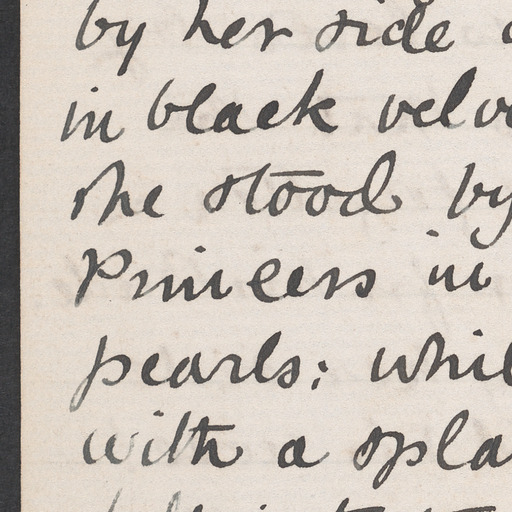 by her side
in black velv
she stood by
Princess in
pearls; whil
with a spla